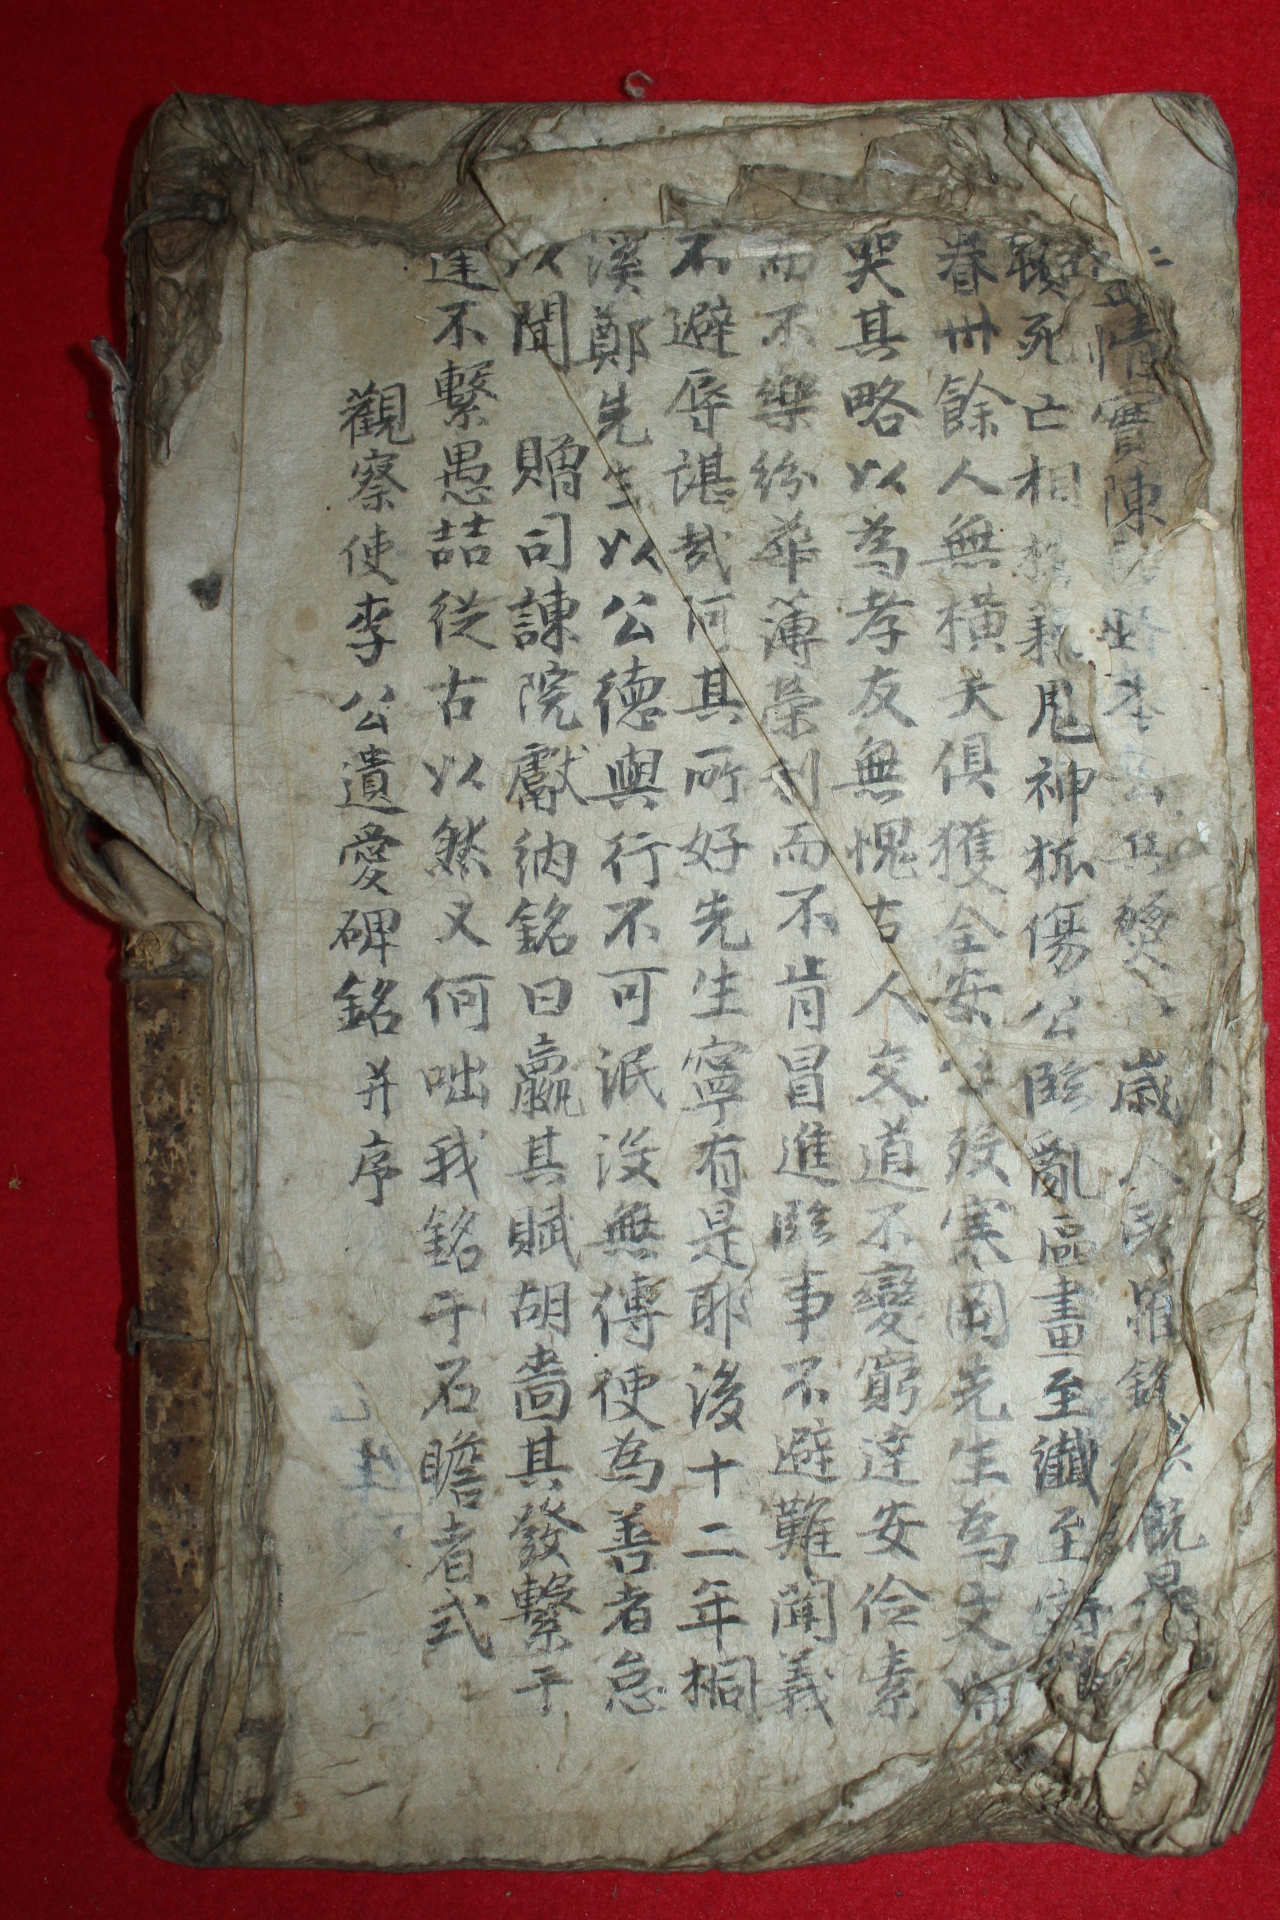 情實陳 歲人民
死亡相 鬼神狐傷公臨亂區畫至纖至密
眷卅餘人無橫夭俱獲全安 歿寒岡先生為文
哭其略以為孝友無愧古人交道不變窮達安伶素
而不樂紛華薄榮利而不肯冒進臨事不避難聞義
不避辱諶哉何其所好先生寧有是耶後十二年桐
溪鄭先生以公德與行不可泯沒無傳使為善者怠
以聞 贈司諫院獻納銘曰贏其賦胡嗇其發繫乎
逢不繫愚喆從古以然又何咄我銘于石瞻者式
觀察使李公遺愛碑銘并序